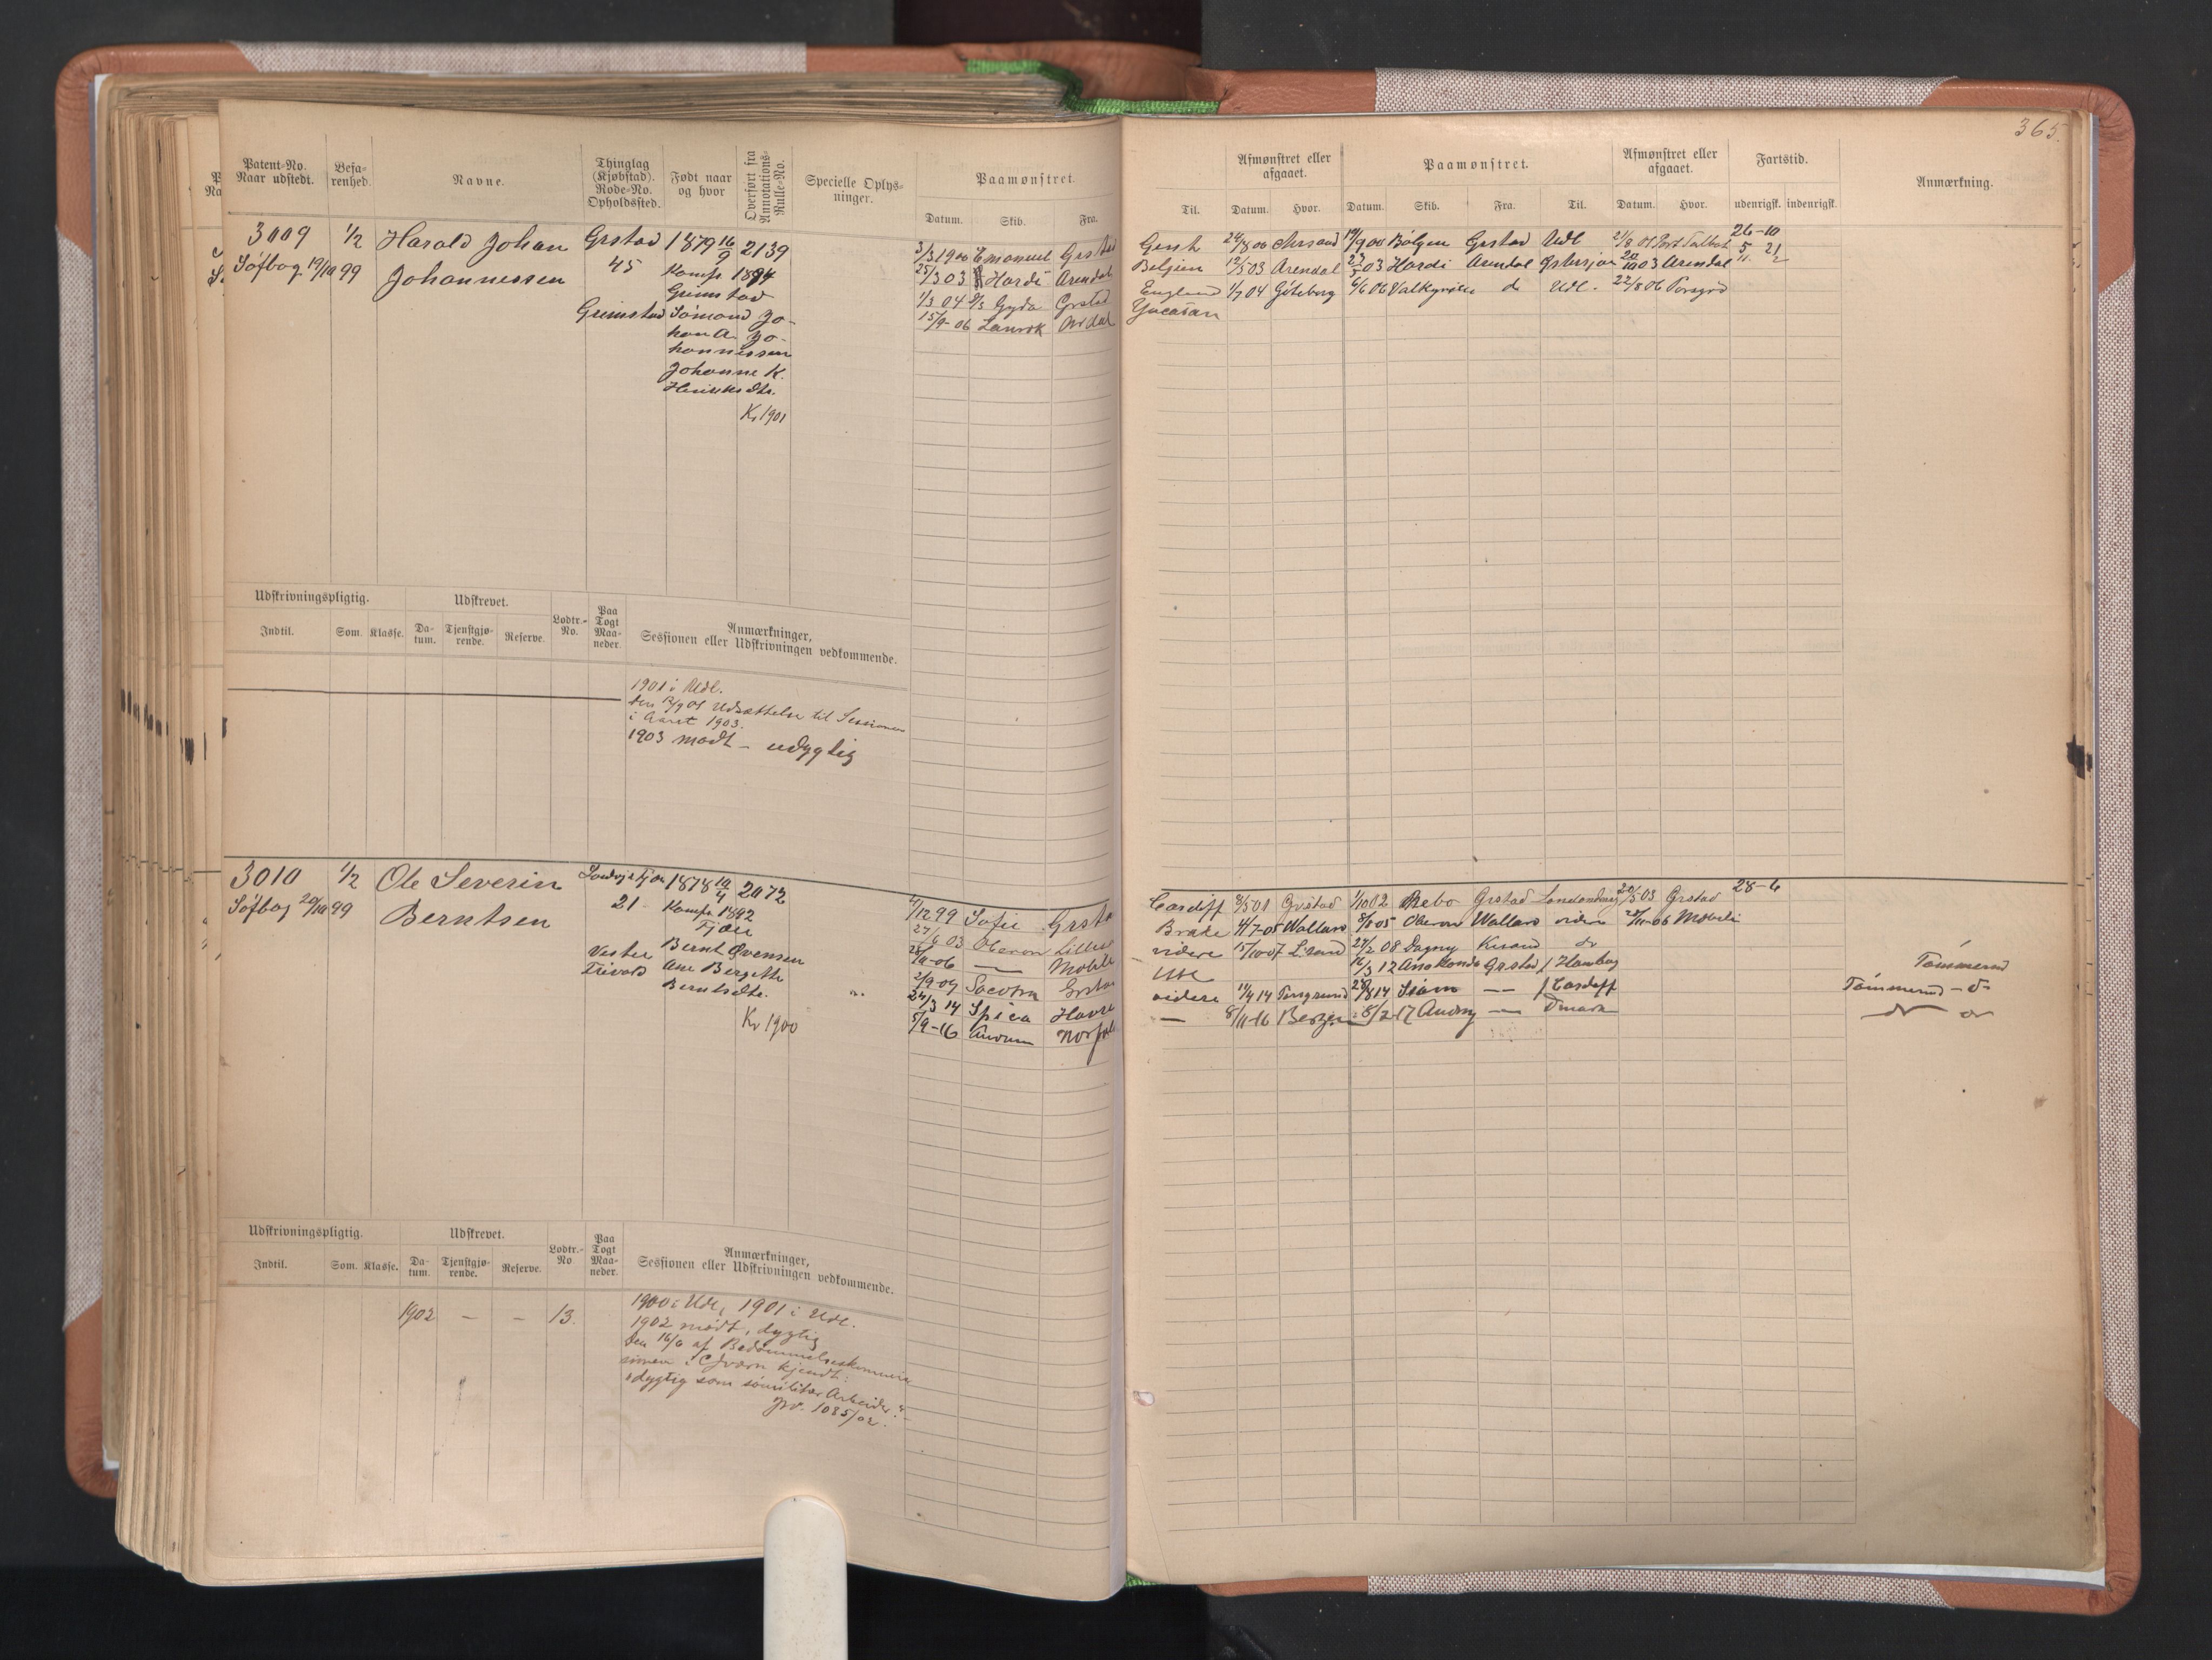 365.
Patent-No. Naar udstedt.
Befarenhed.
Navne.
Thinglag (Kjøbstad). Rode-No. Opholdssted.
Født naar og hvor
Overført fra Annotations-Rulle-No.
Specielle Oplysninger.
Paamønstret.
Datum. Skib. Fra. Til.
Afmønstret eller afgaaet.
Datum. Hvor.
Paamønstret.
Datum. Skib. Fra. Til.
Afmønstret eller afgaaet.
Datum. Hvor.
Fartstid.
udenrigsk. indenrigsk.
Anmærkning.
3009 1/2 Harald Johan Grstad 1879 16/9 2139
Søfbog 19/10 99 Johannessen 45 Konf. 1894
Grimstad
Grimstad Sømand Jo-
han A. Jo-
hannessen
Johanne K.
Henriksdtr.
Kr 1901
3/3 1900 Emanuel Grstad Gent 24/8 00 19/9 00 Bølgen Grstad Udl 2/8 01 Port Talbot 26-10
25/3 03 Hardi Arendal Belgien 12/5 03 Arendal 23/5 03 Hardi Arendal Østersjøn 20/10 03 Arendal
1/3 04 Gyda Grstad England 1/7 04 Göteborg 6/6 06 Valkyrien do Udl. 22/8 06 Porsgrd
15/9-06 Ardal Yucatan
Udskrivningspligtig. Udskrevet. Lodtr.-No. Paa Togt Maaneder. Anmærkninger, Sessionen eller Udskrivningen vedkommende.
Indtil. Som. Klasse. Datum. Tjenstgjørende. Reserve.
1901 i Udl.
den 5/9 01 Udsættelse til Sessionen
i Aaret 1903.
1903 mødt - udygtig
3010 1/2 Ole Severin 1878 10/4 2072
Søfbog 20/10 99 Berntsen 21 Konf. 1892
Fjære
Vester Bernt Øvensen
Trivold Ane Bergitte
Berntsdtr.
Kr 1900
4/12 99 Sofie Grstad Cardiff 8/5 01 Grstad 1/10 02 Rebo Grstad 20/5 03 Grstad 28-6
27/6 03 Oberon Lillesd Brake 4/7-05 Wallarø 8/8 05 Oberon Wallarø videre 28/10-06 Mobile
28/10-06 — Mobile videre 15/10 07 27/2 08 Dagny Krsand do
2/9-09 Socotra Grstad Udl 16/3 12 Anakonda Grstad / Hamburg Tømmermd
24/3 14 Spica Havre videre 11/4 14 Porsgrund 28/8 14 Siam — / Cardiff Tømmermd - do
5/9-16 Norfolk — 8/11-16 Bergen 8/2-17 — Dmark do do
Udskrivningspligtig. Udskrevet. Lodtr.-No Paa Togt Maaneder. Anmærkninger, Sessionen eller Udskrivningen vedkommende.
Indtil. Som. Klasse. Datum. Tjenstgjørende. Reserve.
1902 – – 13.
1900 i Udl, 1901 i Udl.
1902 mødt, dygtig
den 16/6 af Bedømmelseskommis-
sionen i C.Jværn kjendt:
"dygtig som sømilitær Arbeider".
Jv. 1035/02.